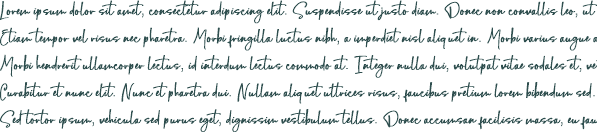 Lorem ipsum dolor sit amet, consectetur adipiscing elit. Suspendisse ut justo diam. Donec non convallis leo, ut
Etiam tempor vel risus nec pharetra. Morbi fringilla luctus nibh, a imperdiet nisl aliquet in. Morbi varius augue a
Morbi hendrerit ullamcorper lectus, id interdum lectus commodo at. Integer nulla dui, volutpat vitae sodales et, ve
Curabitur et nunc elit. Nunc et pharetra dui. Nullam aliquet ultrices risus, faucibus pretium lorem bibendum sed.
Sed tortor ipsum, vehicula sed purus eget, dignissim vestibulum tellus. Donec accumsan facilisis massa, eu fau